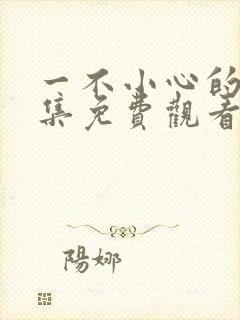 一不小心的
集免費觀看
陽娜